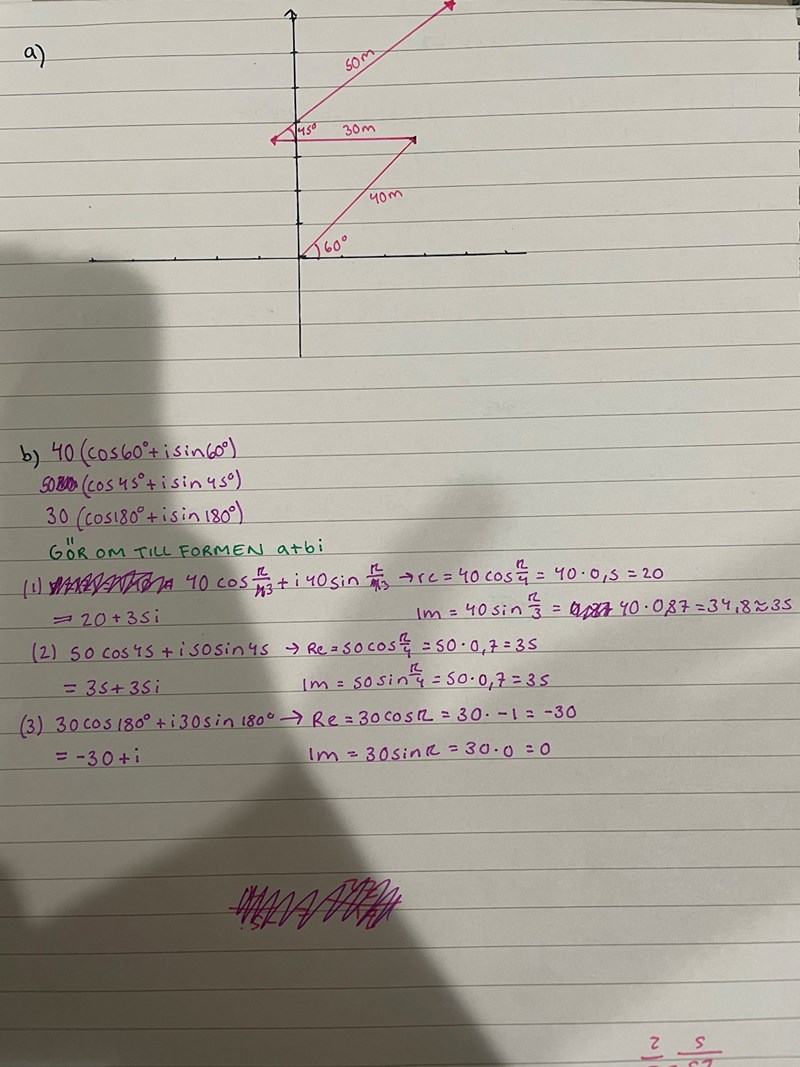 a)
50m
45° 30m
40m
60°
b) 40 (cos60°+isin60°)
50 (cos45°+isin45°)
30 (cos180°+isin180°)
GÖR OM TILL FORMEN a+bi
(1) 40 cos π/3 + i 40sin π/3 → re = 40cos π/4 = 40·0,5 = 20
= 20+35i Im = 40sin π/3 = 40·0,87 = 34,8≈35
(2) 50 cos45 + i50sin45 → Re = 50cos π/4 = 50·0,7 = 35
= 35+35i Im = 50sin π/4 = 50·0,7 = 35
(3) 30cos180° + i30sin180° → Re = 30cosπ = 30·-1 = -30
= -30+i Im = 30sinπ = 30·0 = 0